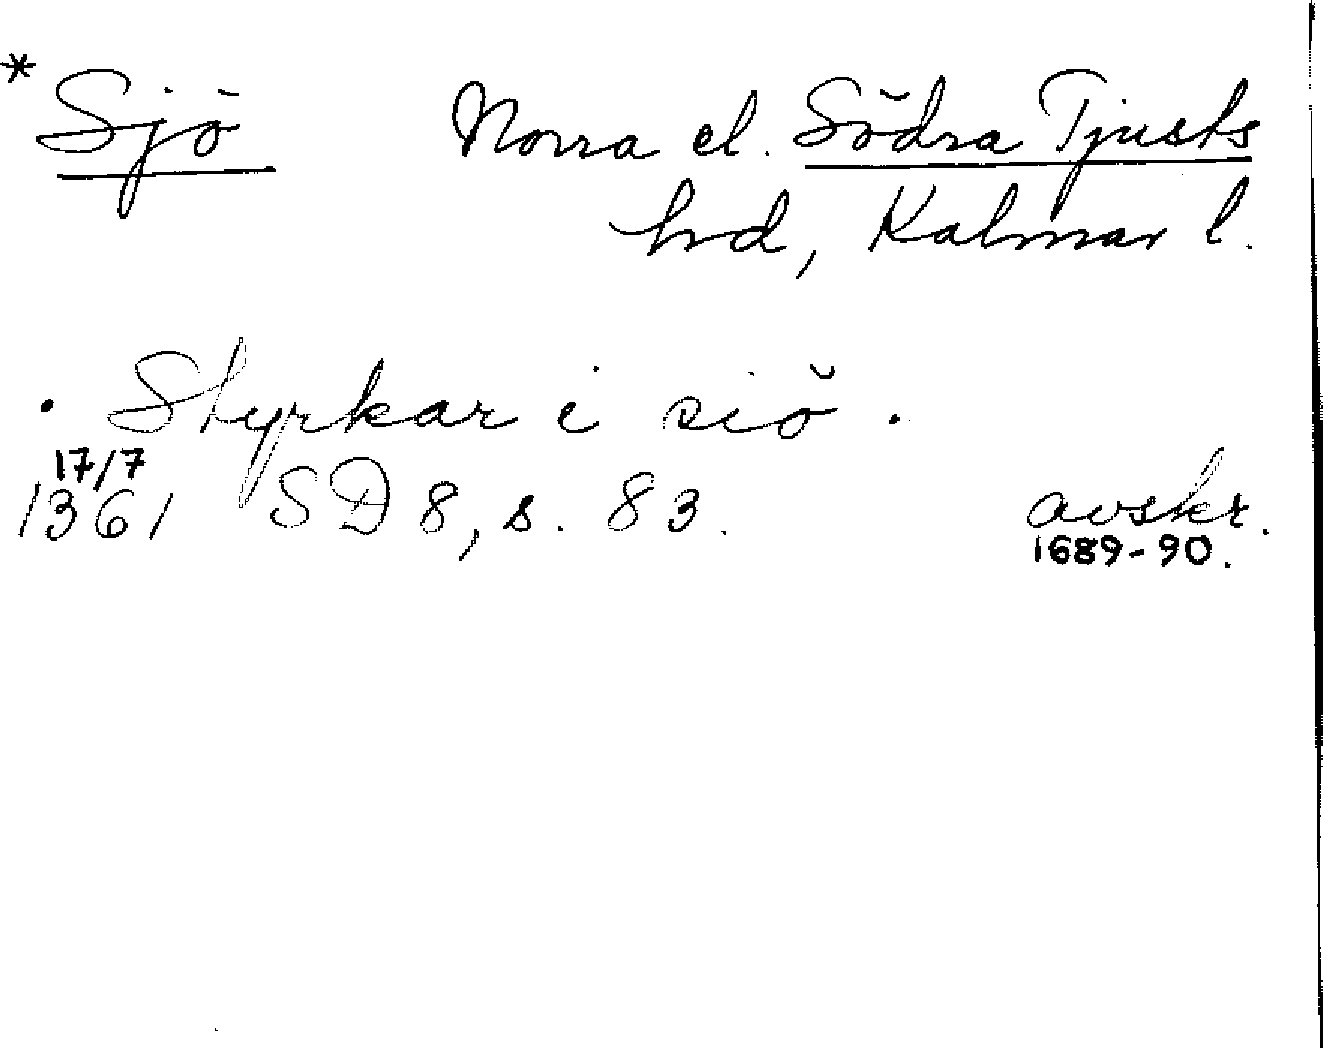 * Sjö Norra el. Södra Tjusts
hd, Kalmar l.
. Styrkar i siö .
17/7
1361 SD 8, s. 83. avskr.
1689-90.